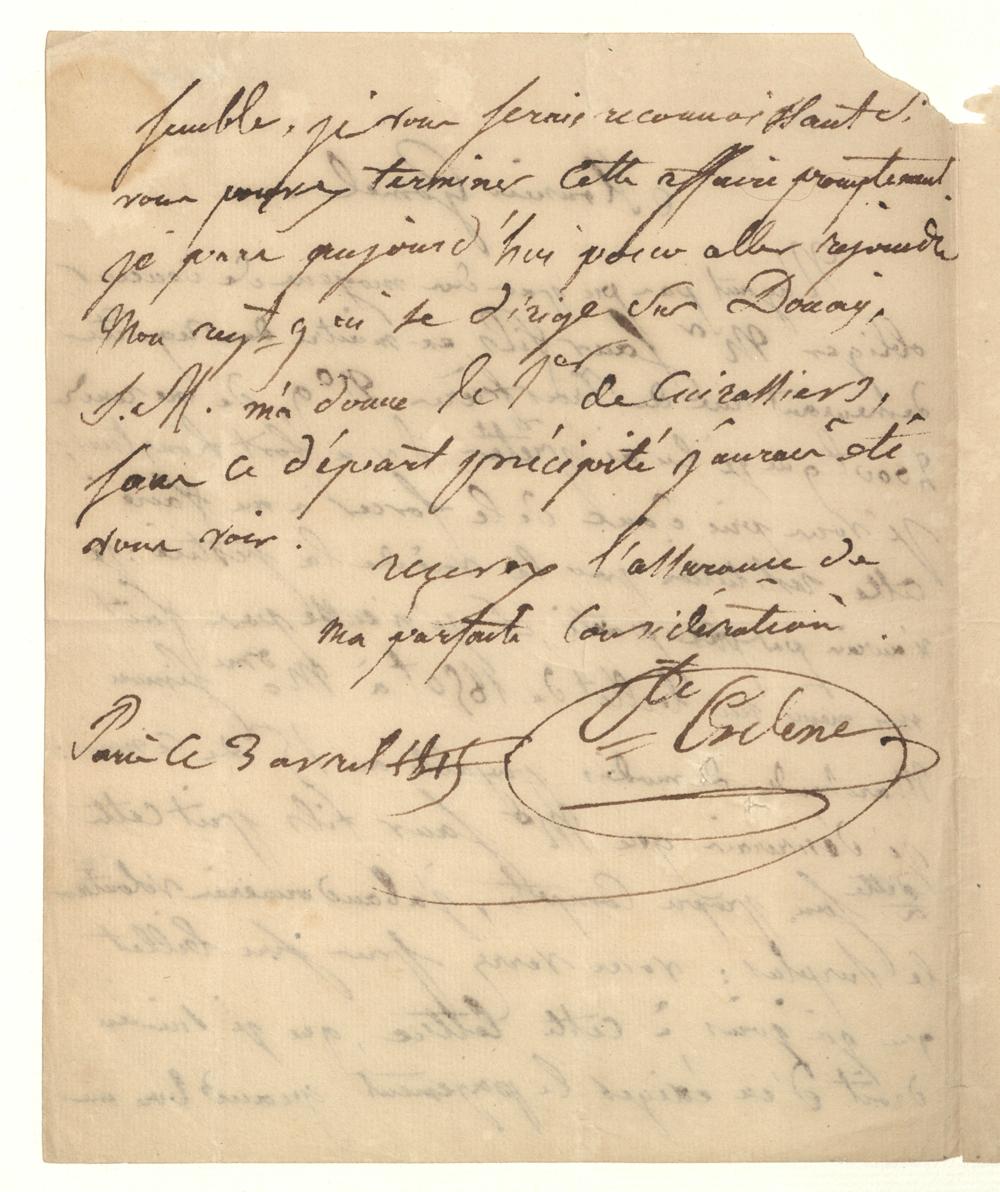 semble, je vous serais reconnaissant si
vous pouvez terminer cette affaire promptement
je pars aujourd'hui pour aller rejoindre
Mon regt qui se dirige sur Douay,
S. M. m'a donné le 1er de Cuirassiers,
sans ce départ précipité j'aurais été
vous voir.
recevez l'assurance de
ma parfaite Considération
Paris Ce 3 avril 1815
Cte Ordene